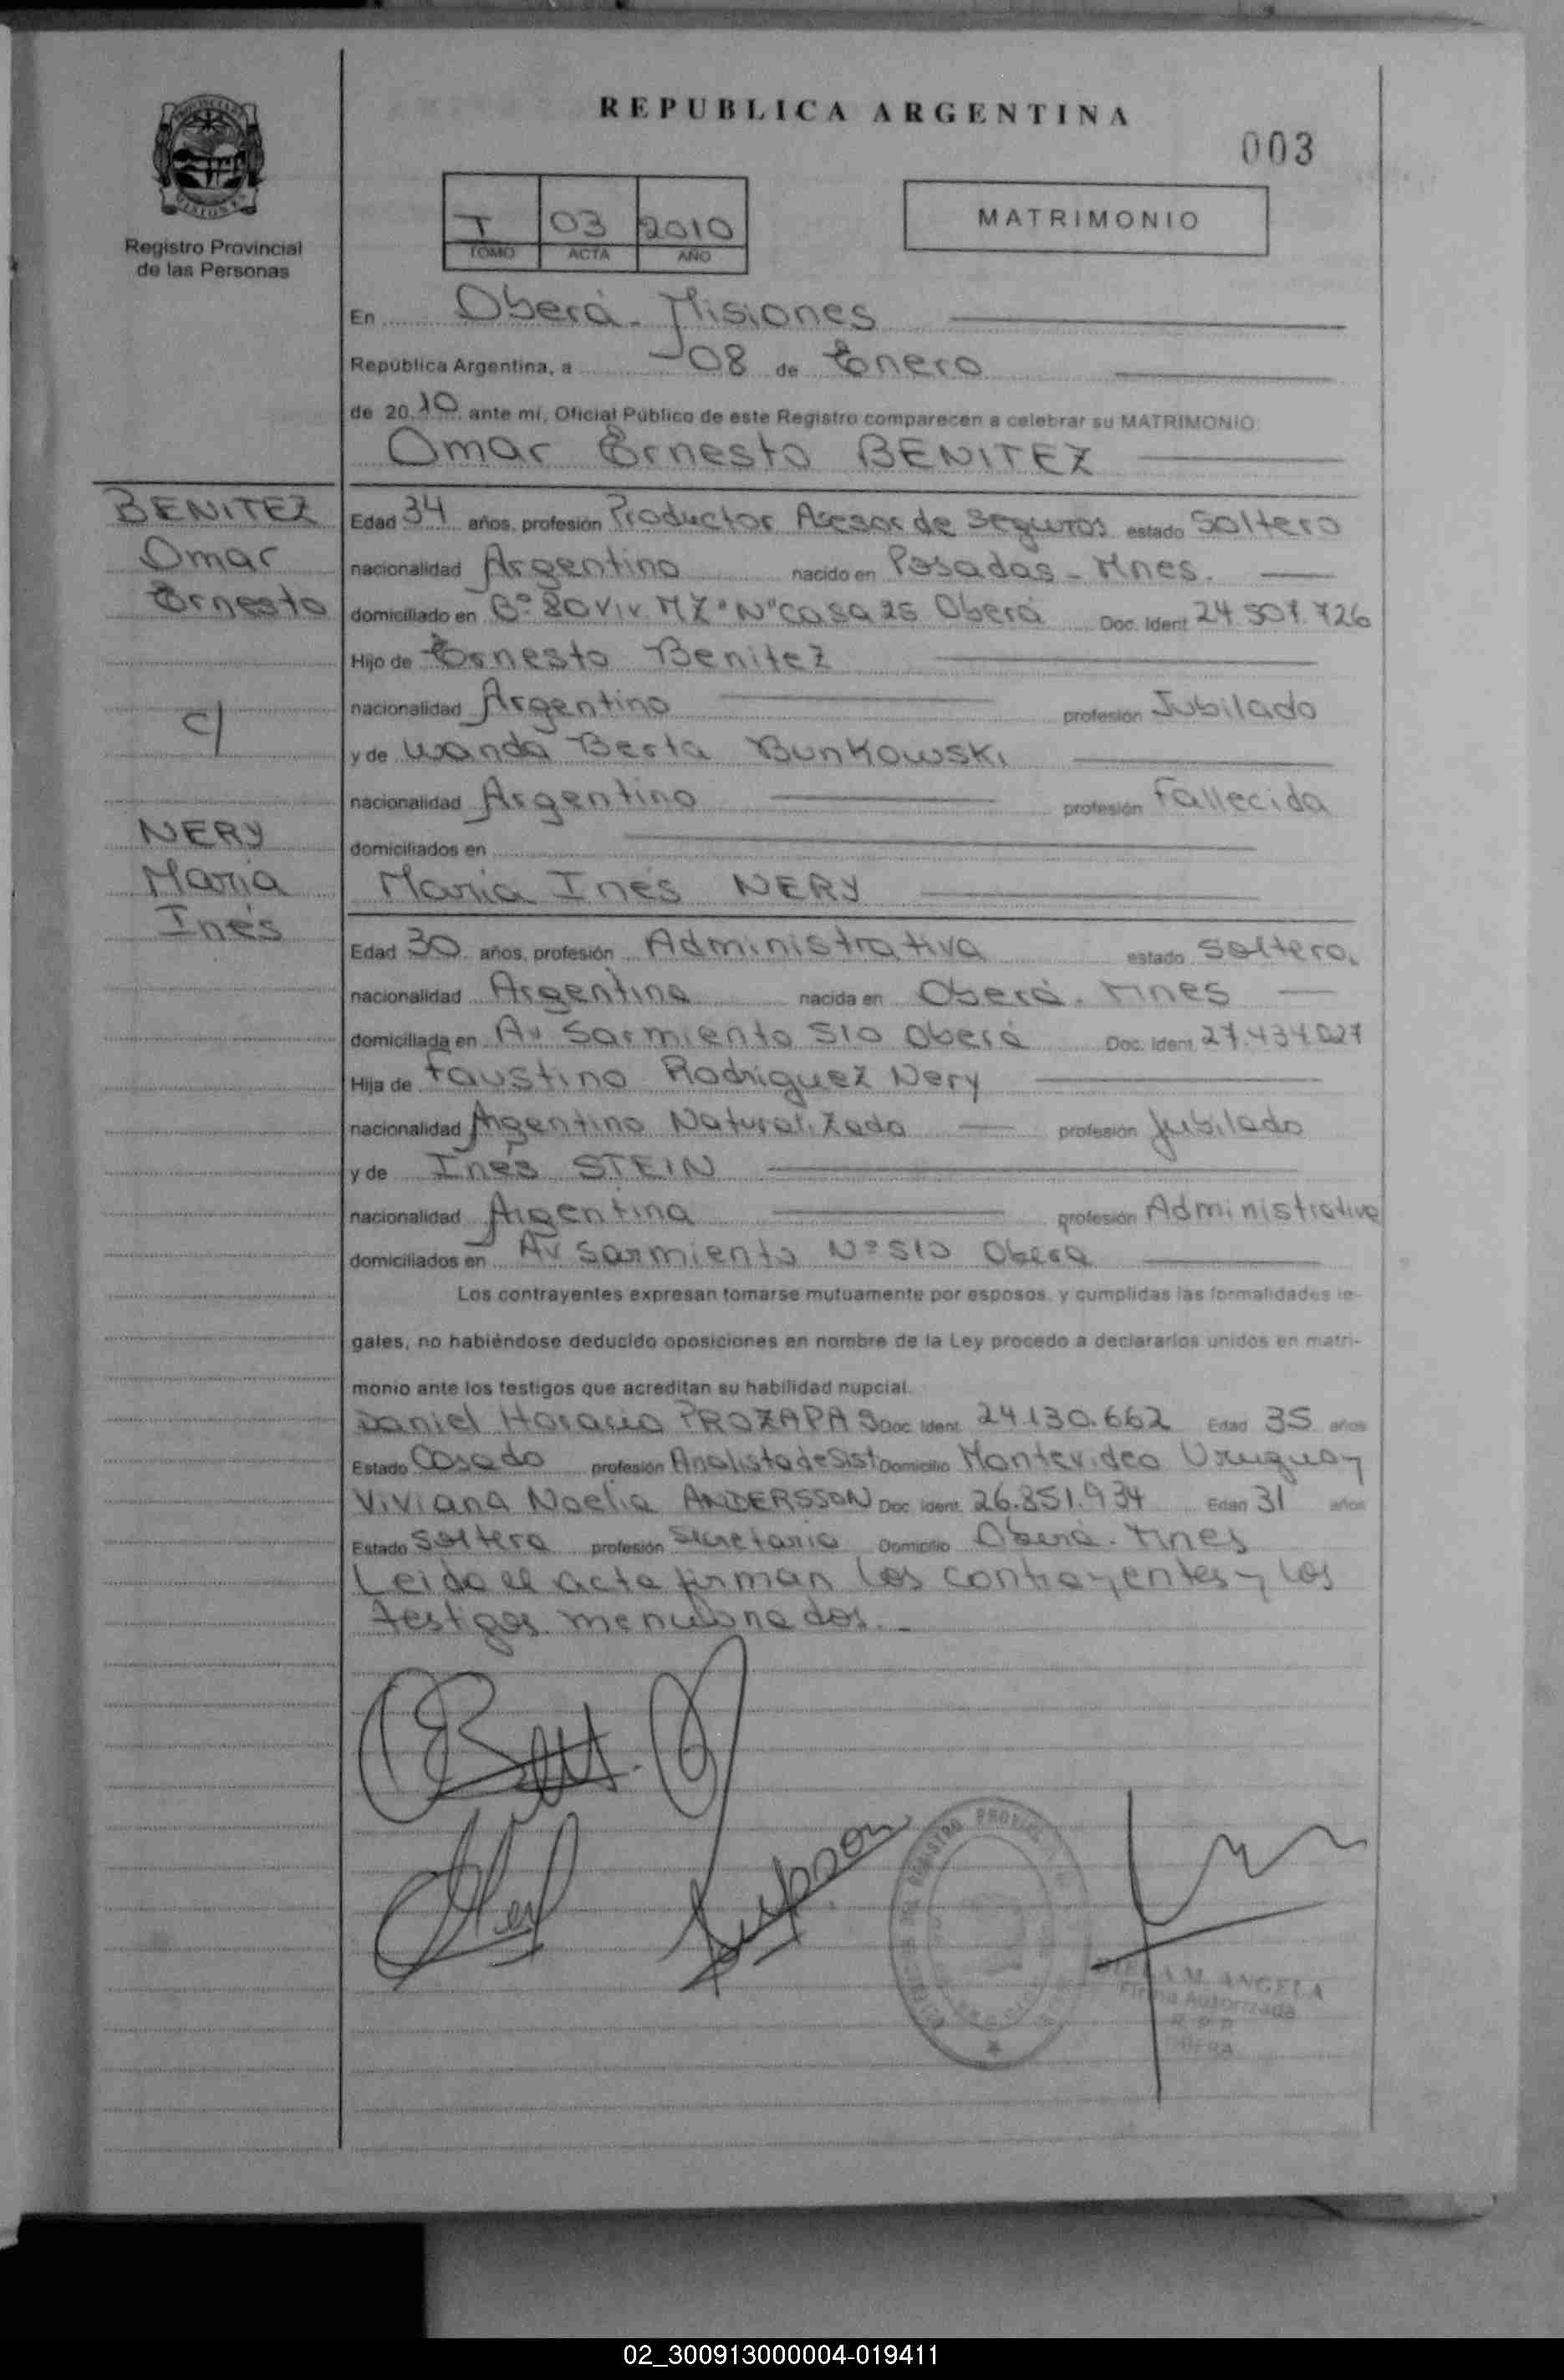 REPUBLICA ARGENTINA
003
Registro Provincial
de las Personas
I 03 2010
TOMO ACTA AÑO
MATRIMONIO
En Oberá - Misiones
República Argentina, a 08 de Enero
de 2010 ante mí, Oficial Público de este Registro comparecen a celebrar su MATRIMONIO:
Omar Ernesto BENITEZ
BENITEZ
Omar
Ernesto
c/
NERY
Maria
Inés
Edad 34 años, profesión Productor Asesor de Seguros estado Soltero
nacionalidad Argentino nacido en Posadas - Mnes.
domiciliado en B° 80 Viv. MZ "N" casa 25 Oberá Doc. Ident
Hijo de Ernesto Benitez
nacionalidad Argentino profesión Jubilado
y de Wanda Berta Bunkowski
nacionalidad Argentina profesión Fallecida
domiciliados en
Maria Inés NERY
Edad 30 años, profesión Administrativa estado Soltera
nacionalidad Argentina nacida en Oberá - Mnes
domiciliada en Av Sarmiento 510 Oberá Doc. Ident 27.434.027
Hija de Faustino Rodriguez Nery
nacionalidad Argentino Naturalizado profesión Jubilado
y de Inés STEIN
nacionalidad Argentina profesión Administrativa
domiciliados en Av Sarmiento N° 510 Obera
Los contrayentes expresan tomarse mutuamente por esposos, y cumplidas las formalidades le-
gales, no habiéndose deducido oposiciones en nombre de la Ley procedo a declararlos unidos en matri-
monio ante los testigos que acreditan su habilidad nupcial.
Daniel Horacio PROZAPAS Doc. Ident. 24.130.662 Edad 35 años
Estado Casado profesión Analista de Sist Domicilio Montevideo Uruguay
Viviana Noelia ANDERSSON Doc. Ident. 26.851.934 Edad 31 años
Estado Soltera profesión Secretaria Domicilio Oberá - Mnes
Leída el acta firman los contrayentes y los
testigos mencionados.-
M. ANGELA
Firma Autorizada
02_300913000004-019411